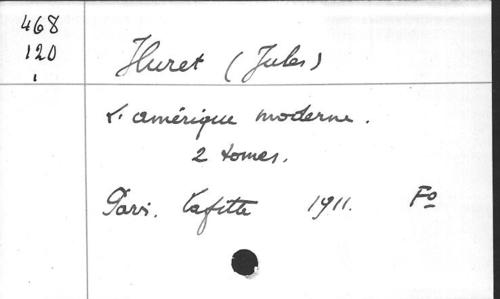 468
120
1
Huret (Jules)
L'amérique moderne.
2 tomes.
Paris. Lafitte 1911. Fo